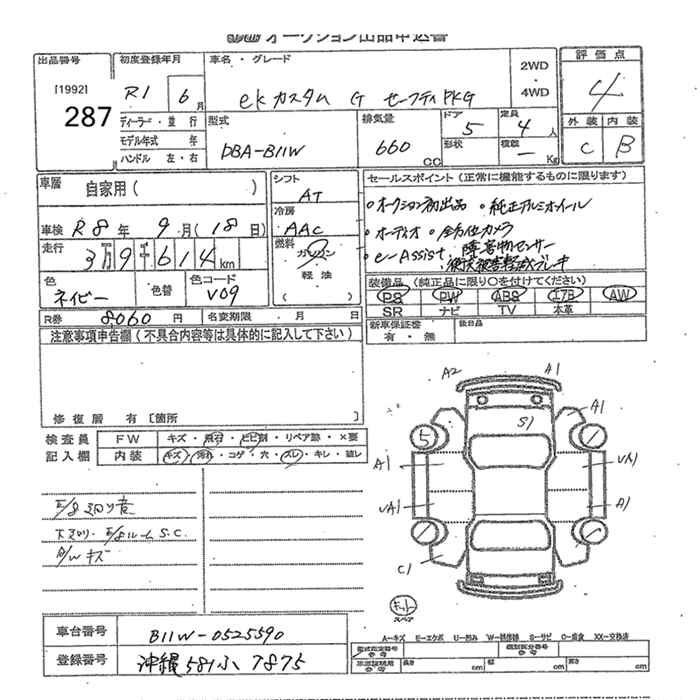 オークション出品申込書
出品番号 [1992] 287
初度登録年月 R1 6月
車名・グレード ekカスタム G セーフティPKG
2WD・4WD
評価点 4
外装 C 内装 B
ディーラー・並行
モデル年式 年
ハンドル 左・右
型式 DBA-B11W
排気量 660 CC
ドア 5
形状
定員 4人
積載 - Kg
車歴 自家用( )
シフト AT
車検 R8年9月(18日)
冷房 AAC
走行 39614km
燃料 ガソリン 軽油 ( )
色 ネイビー 色替 色コード V09
R券 8060円 名変期限 月 日
セールスポイント(正常に機能するものに限ります)
・オークション初出品 ・純正アルミホイール
・オーディオ ・全方位カメラ
・e-Assist,障害物センサー
衝突被害軽減ブレーキ
装備品(純正品に限り○を付けてください)
PS PW ABS エアB AW
SR ナビ TV 本革
新車保証書 有・無 後日品
注意事項申告欄(不具合内容等は具体的に記入して下さい)
修復歴 有[箇所 ]
検査員記入欄
FW キズ・飛石・ヒビ割・リペア跡・×要
内装 キズ・汚れ・コゲ・穴・スレ・キレ・破レ
E/g廻り音
下廻り.E/gルームS.C.
A/Wキズ
A2 A1
A1
S1
5
A1 UA1
UA1 A1
C1
キット
スペア
車台番号 B11W-0525590
登録番号 沖縄 581 小 7875
A―キズ E―エクボ U―凹み S―サビ C―腐食 XX―交換済
型式指定番号 参考 類別区分番号 参考
車車証明用 参考 長さ cm 幅 cm 高さ cm